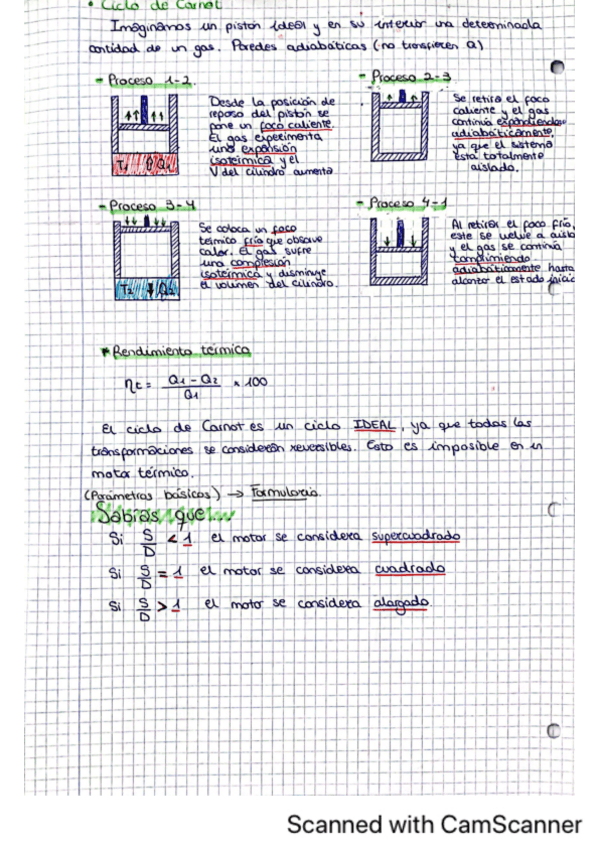 • Ciclo de Carnot
Imaginamos un pistón ideal y en su interior una determinada
cantidad de un gas. Paredes adiabáticas (no transfieren Q)
- Proceso 1-2.
Desde la posición de
reposo del pistón se
pone un foco caliente.
El gas experimenta
una expansión
isotérmica y el
V del cilindro aumenta
T1 Q1
- Proceso 2-3
Se retira el foco
caliente y el gas
continúa expandiéndose
adiabáticamente,
ya que el sistema
está totalmente
aislado.
- Proceso 3-4
Se coloca un foco
térmico frío que absorve
calor. El gas sufre
una compresión
isotérmica y disminuye
el volumen del cilindro.
T2 Q2
- Proceso 4-1
Al retirar el foco frío,
este se vuelve a aisla
y el gas se continúa
comprimiendo
adiabáticamente hasta
alcanzar el estado inicia
* Rendimiento térmico
ηt = Q1 - Q2 / Q1 x 100
El ciclo de Carnot es un ciclo IDEAL, ya que todas las
transformaciones se consideran reversibles. Esto es imposible en un
motor térmico.
(Parámetros básicos) → Formulario.
Sabías que...
Si S/D < 1 el motor se considera supercuadrado
Si S/D = 1 el motor se considera cuadrado
Si S/D > 1 el motor se considera alargado.
Scanned with CamScanner